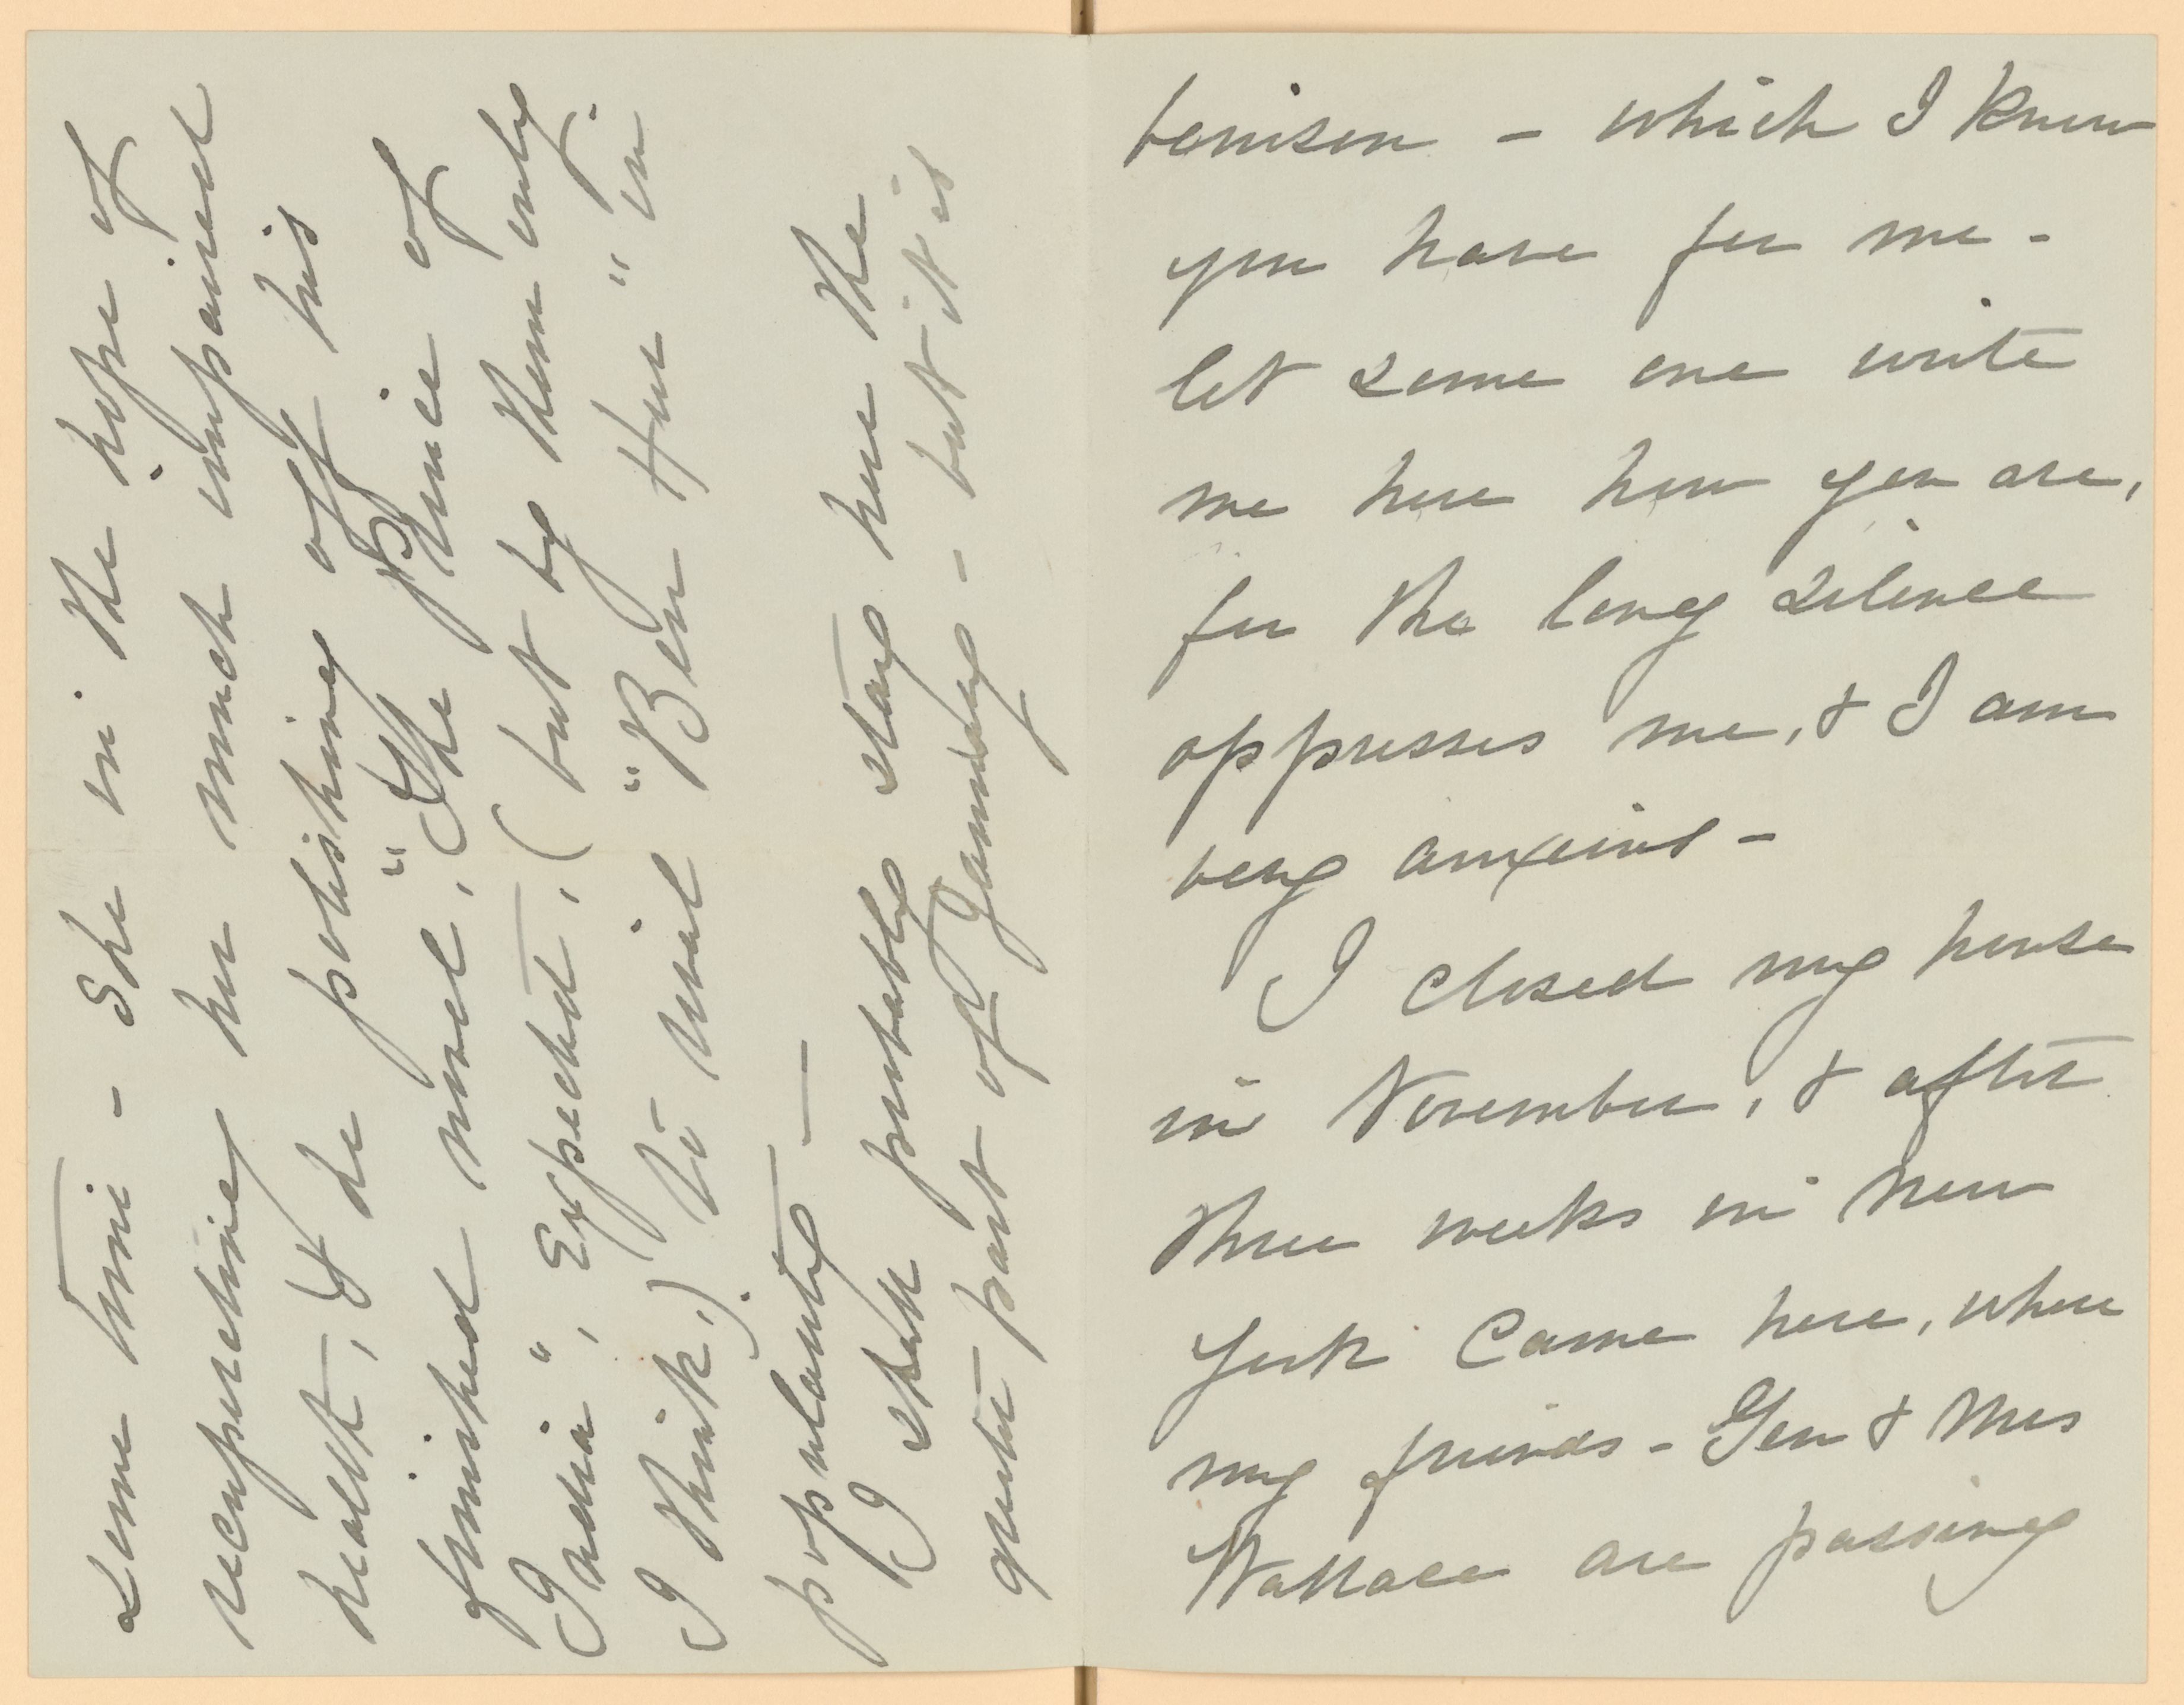 benison - which I know
you have for me -
let some one write
me here how you are,
for the long silence
oppresses me, & I am
very anxious -
I closed my house
in November, & after
three weeks in New
York Came here, where
my friends - Gen & Mrs
Wallace are passing
some time - She in the hope of
recuperating her much impaired
health, & he polishing off his
finished novel, "The Prince of
India", Expected, (but by them only
I think,) to rival "Ben Hur" in
popularity -
I shall probably stay here the
quite part of January - but it is